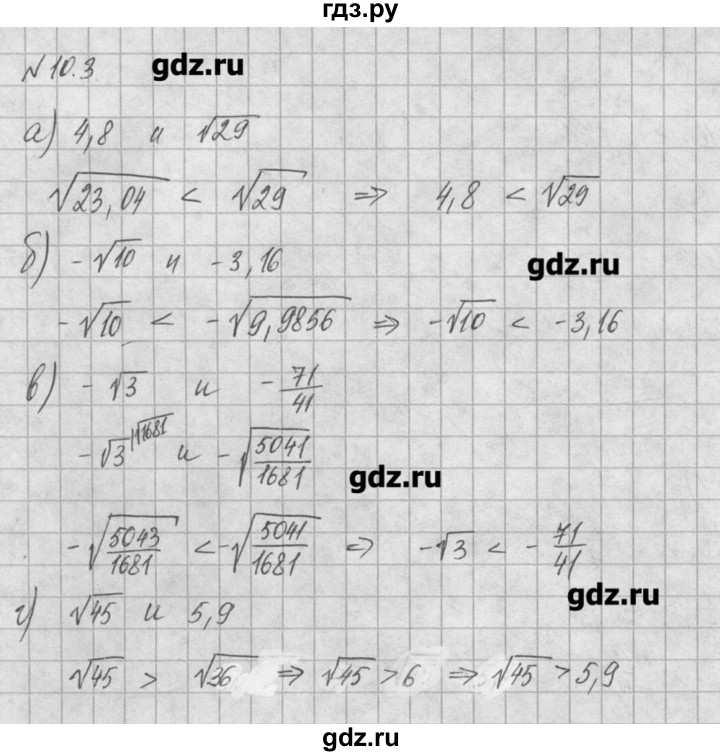 гдз.ру
№ 10.3 gdz.ru
а) 4,8 и √29
√23,04 < √29 ⇒ 4,8 < √29
б) -√10 и -3,16
gdz.ru
-√10 < -√9,9856 ⇒ -√10 < -3,16
в) -√3 и -71/41
-√3 |√1681 и -√5041/1681
gdz.ru
-√5043/1681 < -√5041/1681 ⇒ -√3 < -71/41
gdz.ru
г) √45 и 5,9
√45 > √36 ⇒ √45 > 6 ⇒ √45 > 5,9
gdz.ru